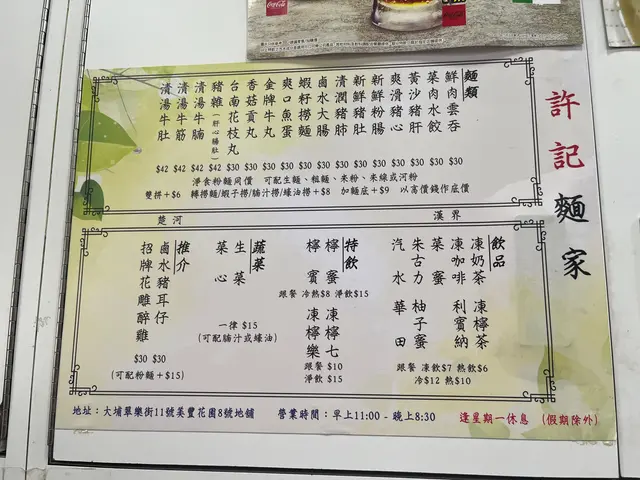 許記麵家
麵類
鮮肉雲吞
菜肉水餃
黃沙豬肝
爽滑豬心
新鮮粉腸
新鮮豬肚
清潤豬肺
鹵水大腸
蝦籽撈麵
爽口魚蛋
金牌牛丸
香菇貢丸
台南花枝丸
豬雜(肝心腸肚)
清湯牛腩
清湯牛筋
清湯牛肚
$42 $42 $42 $42 $30 $30 $30 $30 $30 $30 $30 $30 $30 $30 $30 $30 $30
淨食粉麵同價 可配生麵、粗麵、米粉、米線或河粉
雙拼+$6 轉撈麵/蝦子撈/腩汁撈/蠔油撈+$8 加麵底+$9 以高價錢作底價
楚河 漢界
飲品
凍奶茶 凍檸茶
凍咖啡 利賓納
菜蜜 柚子蜜
朱古力 華田
汽水
跟餐 凍飲$7 熱飲$6
冷$12 熱$10
特飲
檸蜜
檸賓
跟餐 冷熱$8 淨飲$15
凍檸七
凍檸樂
跟餐 $10
淨飲 $15
蔬菜
生菜
菜心
一律 $15
(可配腩汁或蠔油)
推介
鹵水豬耳仔
招牌花雕醉雞
$30 $30
(可配粉麵+$15)
地址：大埔翠樂街11號美豐花園8號地舖 營業時間：早上11:00 - 晚上8:30 逢星期一休息 (假期除外)